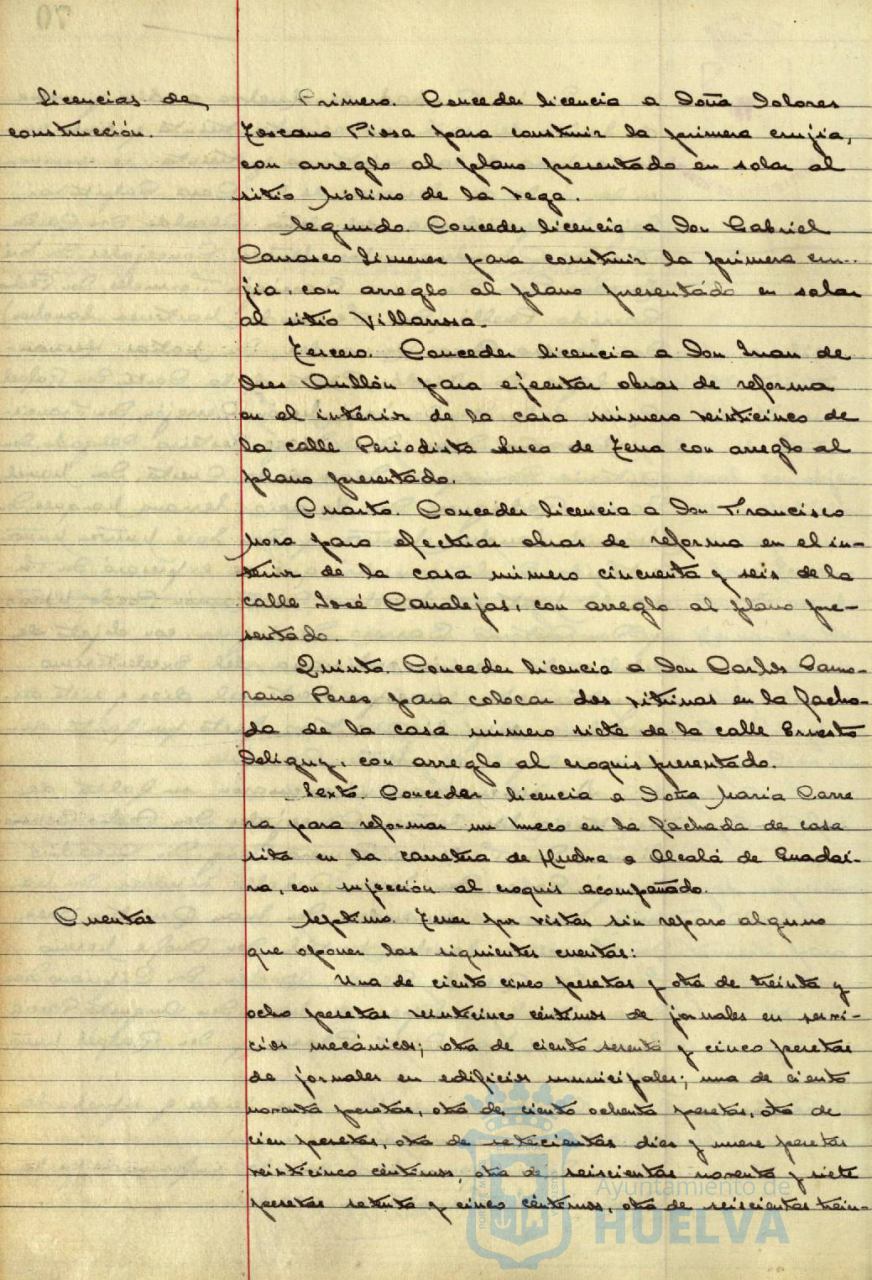 70
Licencias de
construcción.
Primero. Conceder licencia a Doña Dolores
Toscano Piosa para construir la primera crujía,
con arreglo al plano presentado en solar al
sitio Molino de la Vega.
Segundo. Conceder licencia a Don Gabriel
Carrasco Jimenez para construir la primera cru-
jía, con arreglo al plano presentado en solar
al sitio Villarrosa.
Tercero. Conceder licencia a Don Juan de
Dios Aullón para ejecutar obras de reforma
en el interior de la casa número veinticinco de
la calle Periodista Luca de Tena con arreglo al
plano presentado.
Cuarto. Conceder licencia a Don Francisco
Mora para efectuar obras de reforma en el in-
terior de la casa número cincuenta y seis de la
calle José Canalejas, con arreglo al plano pre-
sentado.
Quinto. Conceder licencia a Don Carlos Zamo-
rano Perez para colocar dos vitrinas en la facha-
da de la casa número siete de la calle Ernesto
Deligny, con arreglo al croquis presentado.
Sexto. Conceder licencia a Doña María Carre
ra para reformar un hueco en la fachada de casa
sita en la carretera de Huelva a Alcalá de Guadaí-
ra, con sujección al croquis acompañado.
Cuentas
Septimo. Tener por vistas sin reparo alguno
que oponer las siguientes cuentas:
Una de ciento cinco pesetas y otra de treinta y
ocho pesetas veinticinco céntimos de jornales en servi-
cios mecánicos; otra de ciento sesenta y cinco pesetas
de jornales en edificios municipales; una de ciento
noventa pesetas, otra de ciento ochenta pesetas, otra de
cien pesetas, otra de setecientas diez y nueve pesetas
veinticinco céntimos, otra de seiscientas noventa y siete
pesetas setenta y cinco céntimos, otra de seiscientas trein-
Ayuntamiento de
HUELVA